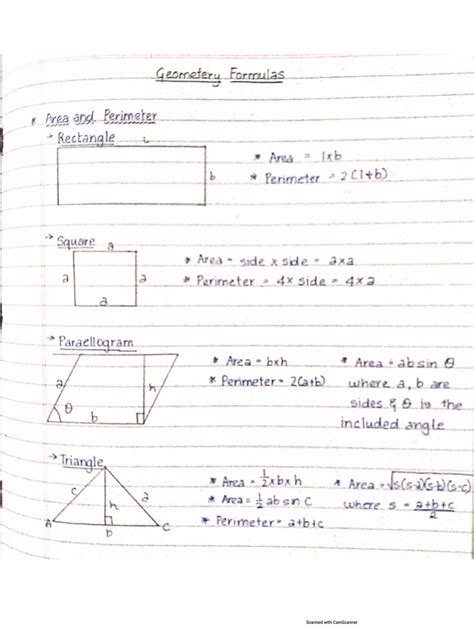 Geometery Formulas
* Area and Perimeter
→ Rectangle
l
b
* Area = l×b
* Perimeter = 2(l+b)
→ Square
a
a
a
a
* Area = side × side = a×a
* Perimeter = 4× side = 4×a
→ Paraellogram
a
h
θ
b
* Area = b×h
* Perimeter = 2(a+b)
* Area = ab sin θ
where a, b are
sides & θ is the
included angle
→ Triangle
c
h
a
A
D
C
* Area = 1/2 × b × h
* Area = 1/2 ab sin C
* Perimeter = a+b+c
* Area = √s(s-a)(s-b)(s-c)
where s = a+b+c/2
Scanned with CamScanner